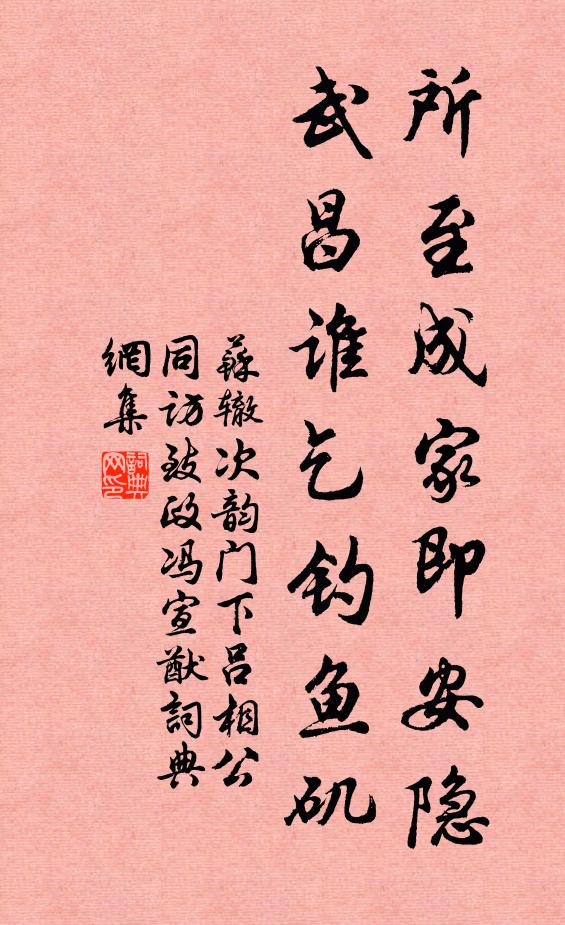 所至成家即安隐
武昌谁乞钓鱼矶
蘇辙次韵门下吕相公
同访致政冯宣猷詞典
網集
詞典网印